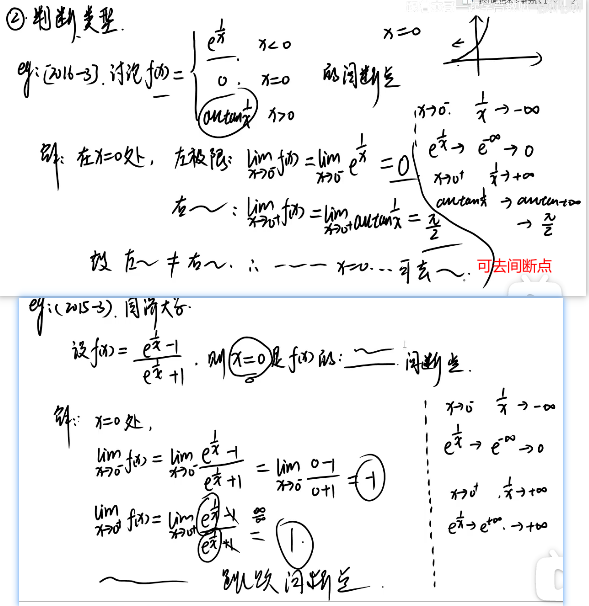 ② 判断类型.
eg: (2016-3). 讨论 f(x) = { e^{1/x} x<0
0. x=0
arctan 1/x x>0
的间断点
x=0
解: 在x=0处, 左极限: lim_{x→0⁻} f(x) = lim_{x→0⁻} e^{1/x} = 0
右~: lim_{x→0⁺} f(x) = lim_{x→0⁺} arctan 1/x = π/2
故 左~ ≠ 右~. ∴ —— x=0 … 可去~.
可去间断点
x→0⁻. 1/x → -∞
e^{1/x} → e^{-∞} → 0
x→0⁺ 1/x → +∞
arctan 1/x → arctan+∞
→ π/2
eg: (2015-3). 同济大学.
设 f(x) = (e^{1/x} - 1)/(e^{1/x} + 1). 则 x=0 是 f(x) 的: 间断点.
解: x=0处,
lim_{x→0⁻} f(x) = lim_{x→0⁻} (e^{1/x} - 1)/(e^{1/x} + 1) = lim_{x→0⁻} (0-1)/(0+1) = -1
lim_{x→0⁺} f(x) = lim_{x→0⁺} (e^{1/x} - 1)/(e^{1/x} + 1) ∞/∞ = 1.
跳跃间断点.
x→0⁻ 1/x → -∞
e^{1/x} → e^{-∞} → 0
x→0⁺ 1/x → +∞
e^{1/x} → e^{+∞} → +∞